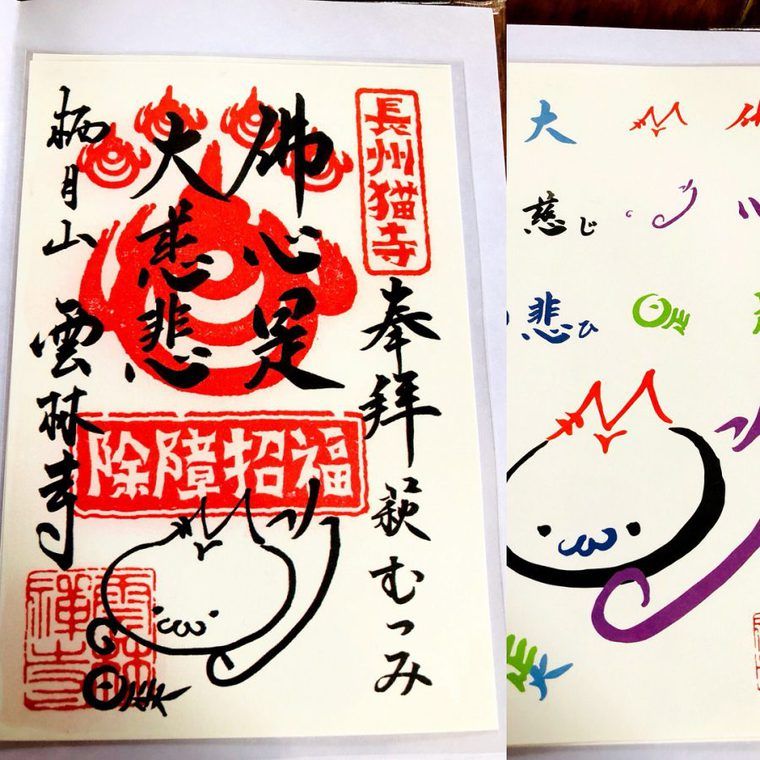 長州猫寺
奉拝 萩むつみ
佛心是
大慈悲
栖月山 雲林寺
除障招福
雲林禅寺
大
慈じ
悲ひ